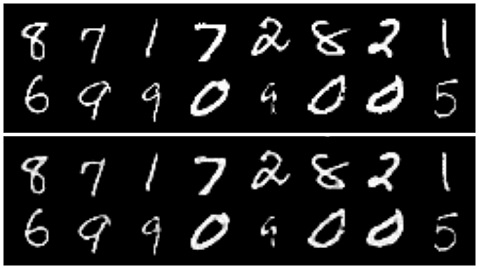 8 7 1 7 2 8 2 1
6 9 9 0 9 0 0 5
8 7 1 7 2 8 2 1
6 9 9 0 9 0 0 5